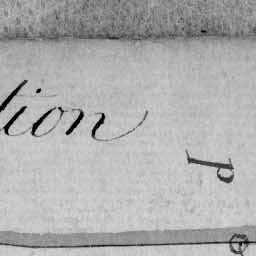 tion
P